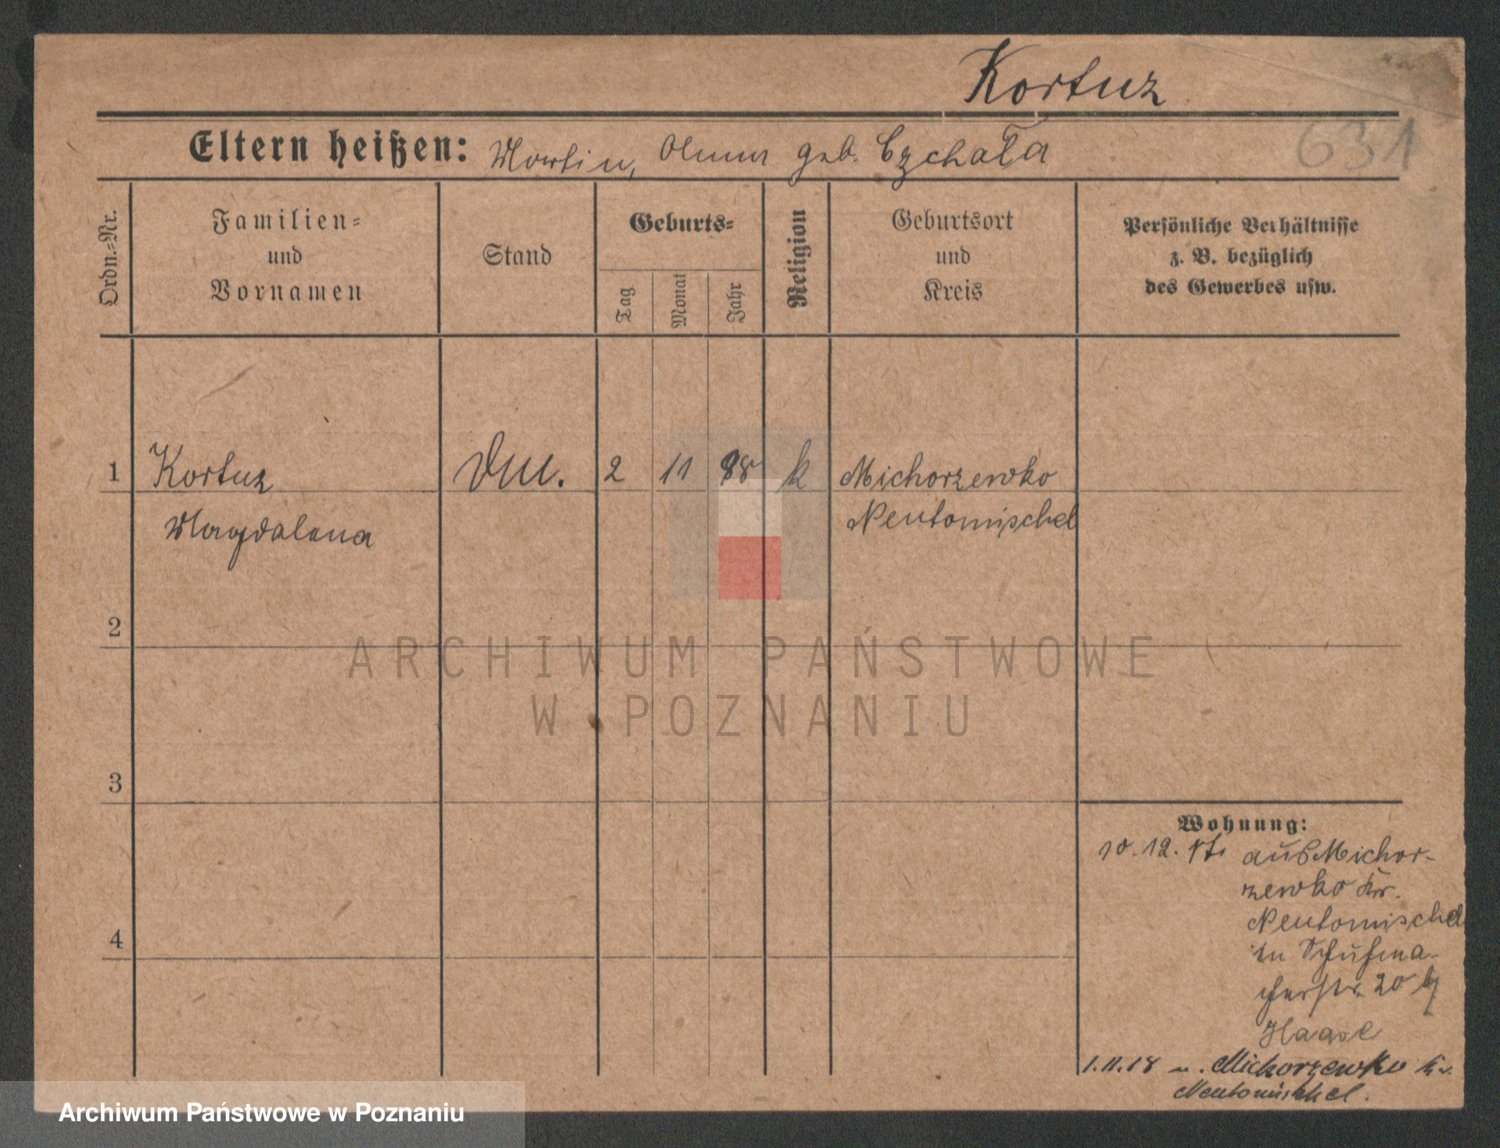 Kortuz
631
Eltern heißen: Martin, Anna geb. Czchała
Ordn.-Nr.
Familien-
und
Vornamen
Stand
Geburts-
Tag
Monat
Jahr
Religion
Geburtsort
und
Kreis
Persönliche Verhältnisse
z. B. bezüglich
des Gewerbes usw.
1 Kortuz 2 11 88 k Michorzewko
Magdalena Neutomischel
2
3
4
Wohnung:
10.12.17. aus Michor-
zewko Kr.
Neutomischel
in Schuhma-
cherstr. 20 bj
Haase
1.11.18 n. Michorzewko Kr.
Neutomischel.
ARCHIWUM PAŃSTWOWE
W POZNANIU
Archiwum Państwowe w Poznaniu